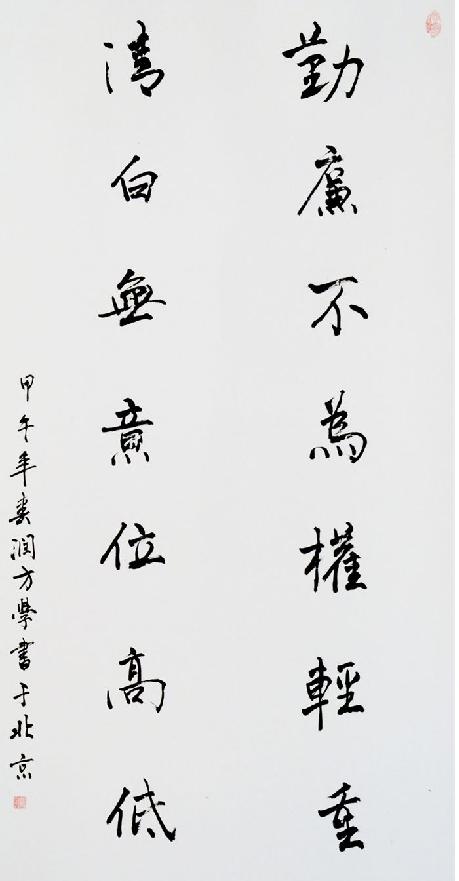 勤廉不為權輕重
清白無意位高低
甲午年春润方學書于北京